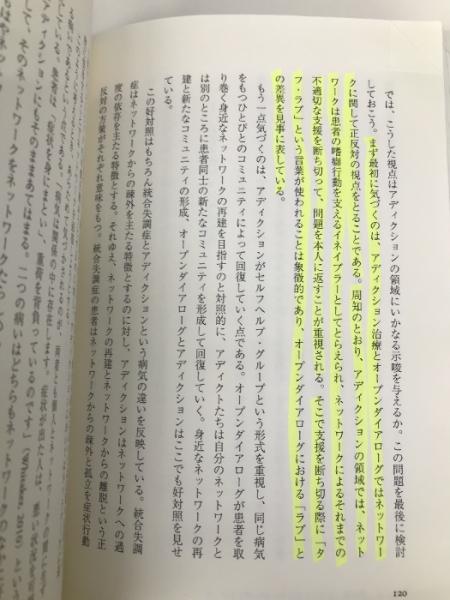 では、こうした視点はアディクションの領域にいかなる示唆を与えるか。この問題を最後に検討
しておこう。まず最初に気づくのは、アディクション治療とオープンダイアローグではネットワー
クに関して正反対の視点をとることである。周知のとおり、アディクションの領域では、ネット
ワークは患者の嗜癖行動を支えるイネイブラーとしてとらえられ、ネットワークによるそれまでの
不適切な支援を断ち切って、問題を本人に返すことが重視される。そこで支援を断ち切る際に「タ
フ・ラブ」という言葉が使われることは象徴的であり、オープンダイアローグにおける「ラブ」と
の差異を見事に表している。
もう一点気づくのは、アディクションがセルフヘルプ・グループという形式を重視し、同じ病気
をもつひとびとのコミュニティによって回復していく点である。オープンダイアローグが患者を取
り巻く身近なネットワークの再建を目指すのと対照的に、アディクトたちは自分のネットワークと
は別のところに患者同士の新たなコミュニティを形成して回復していく。身近なネットワークの再
建と新たなコミュニティの形成、オープンダイアローグとアディクションはここでも好対照を見せ
ている。
この好対照はもちろん統合失調症とアディクションという病気の違いを反映している。統合失調
症はネットワークからの疎外を主たる特徴とするのに対し、アディクションはネットワークへの過
度の依存を主たる特徴とする。それゆえ、ネットワークの再建とネットワークからの離脱という正
反対の方策がそれぞれ意味をもつ。統合失調症の患者はネットワークからの疎外と孤立を症状行動
病気は関係の中に存在します。症状が出た人は、
患者は、症状を身にまとい、重荷を背負っているのです」
ィクションにもそのままあてはまる。二つの病いはどちらもネットワークの
し、そのネットワークをネットワークたらし
120